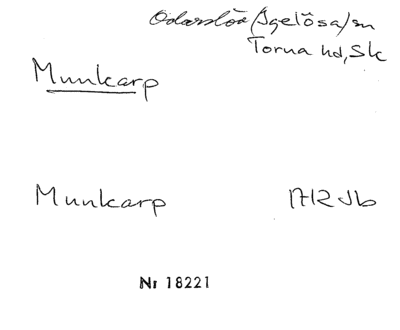 Odarslöv/Igelösa/sn
Torna hd, Sk
Munkarp
Munkarp 1712 Jb
Nr 18221